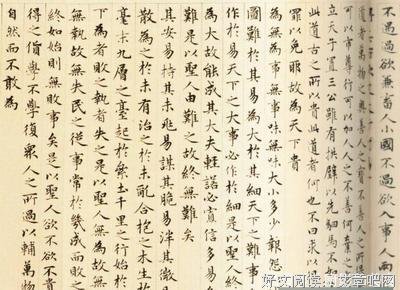 不過欲兼畜人小國不過欲入事人兩
道者萬物之奧善人之寶不善人之所
可以市尊行可以加人人之不善何棄之
立天子置三公雖有拱璧以先駟馬不如
此道古之所以貴此道者何也不曰求以
罪以免耶故為天下貴
為無為事無事味無味大小多少報怨
圖難於其易為大於其細天下之難事
作於易天下之大事必作於細是以聖人終
為大故能成其大夫輕諾必寡信多易
難是以聖人由難之故終無難矣
其安易持其未兆易謀其脆易泮其微易
散為之於未有治之於未亂合抱之木生於
毫末九層之臺起於累土千里之行始於
下為者敗之執者失之是以聖人無為故無
無執故無失民之從事常於幾成而敗之
終如始則無敗事矣是以聖人欲不欲不貴
得之貨學不學復眾人之所過以輔萬物
自然而不敢為